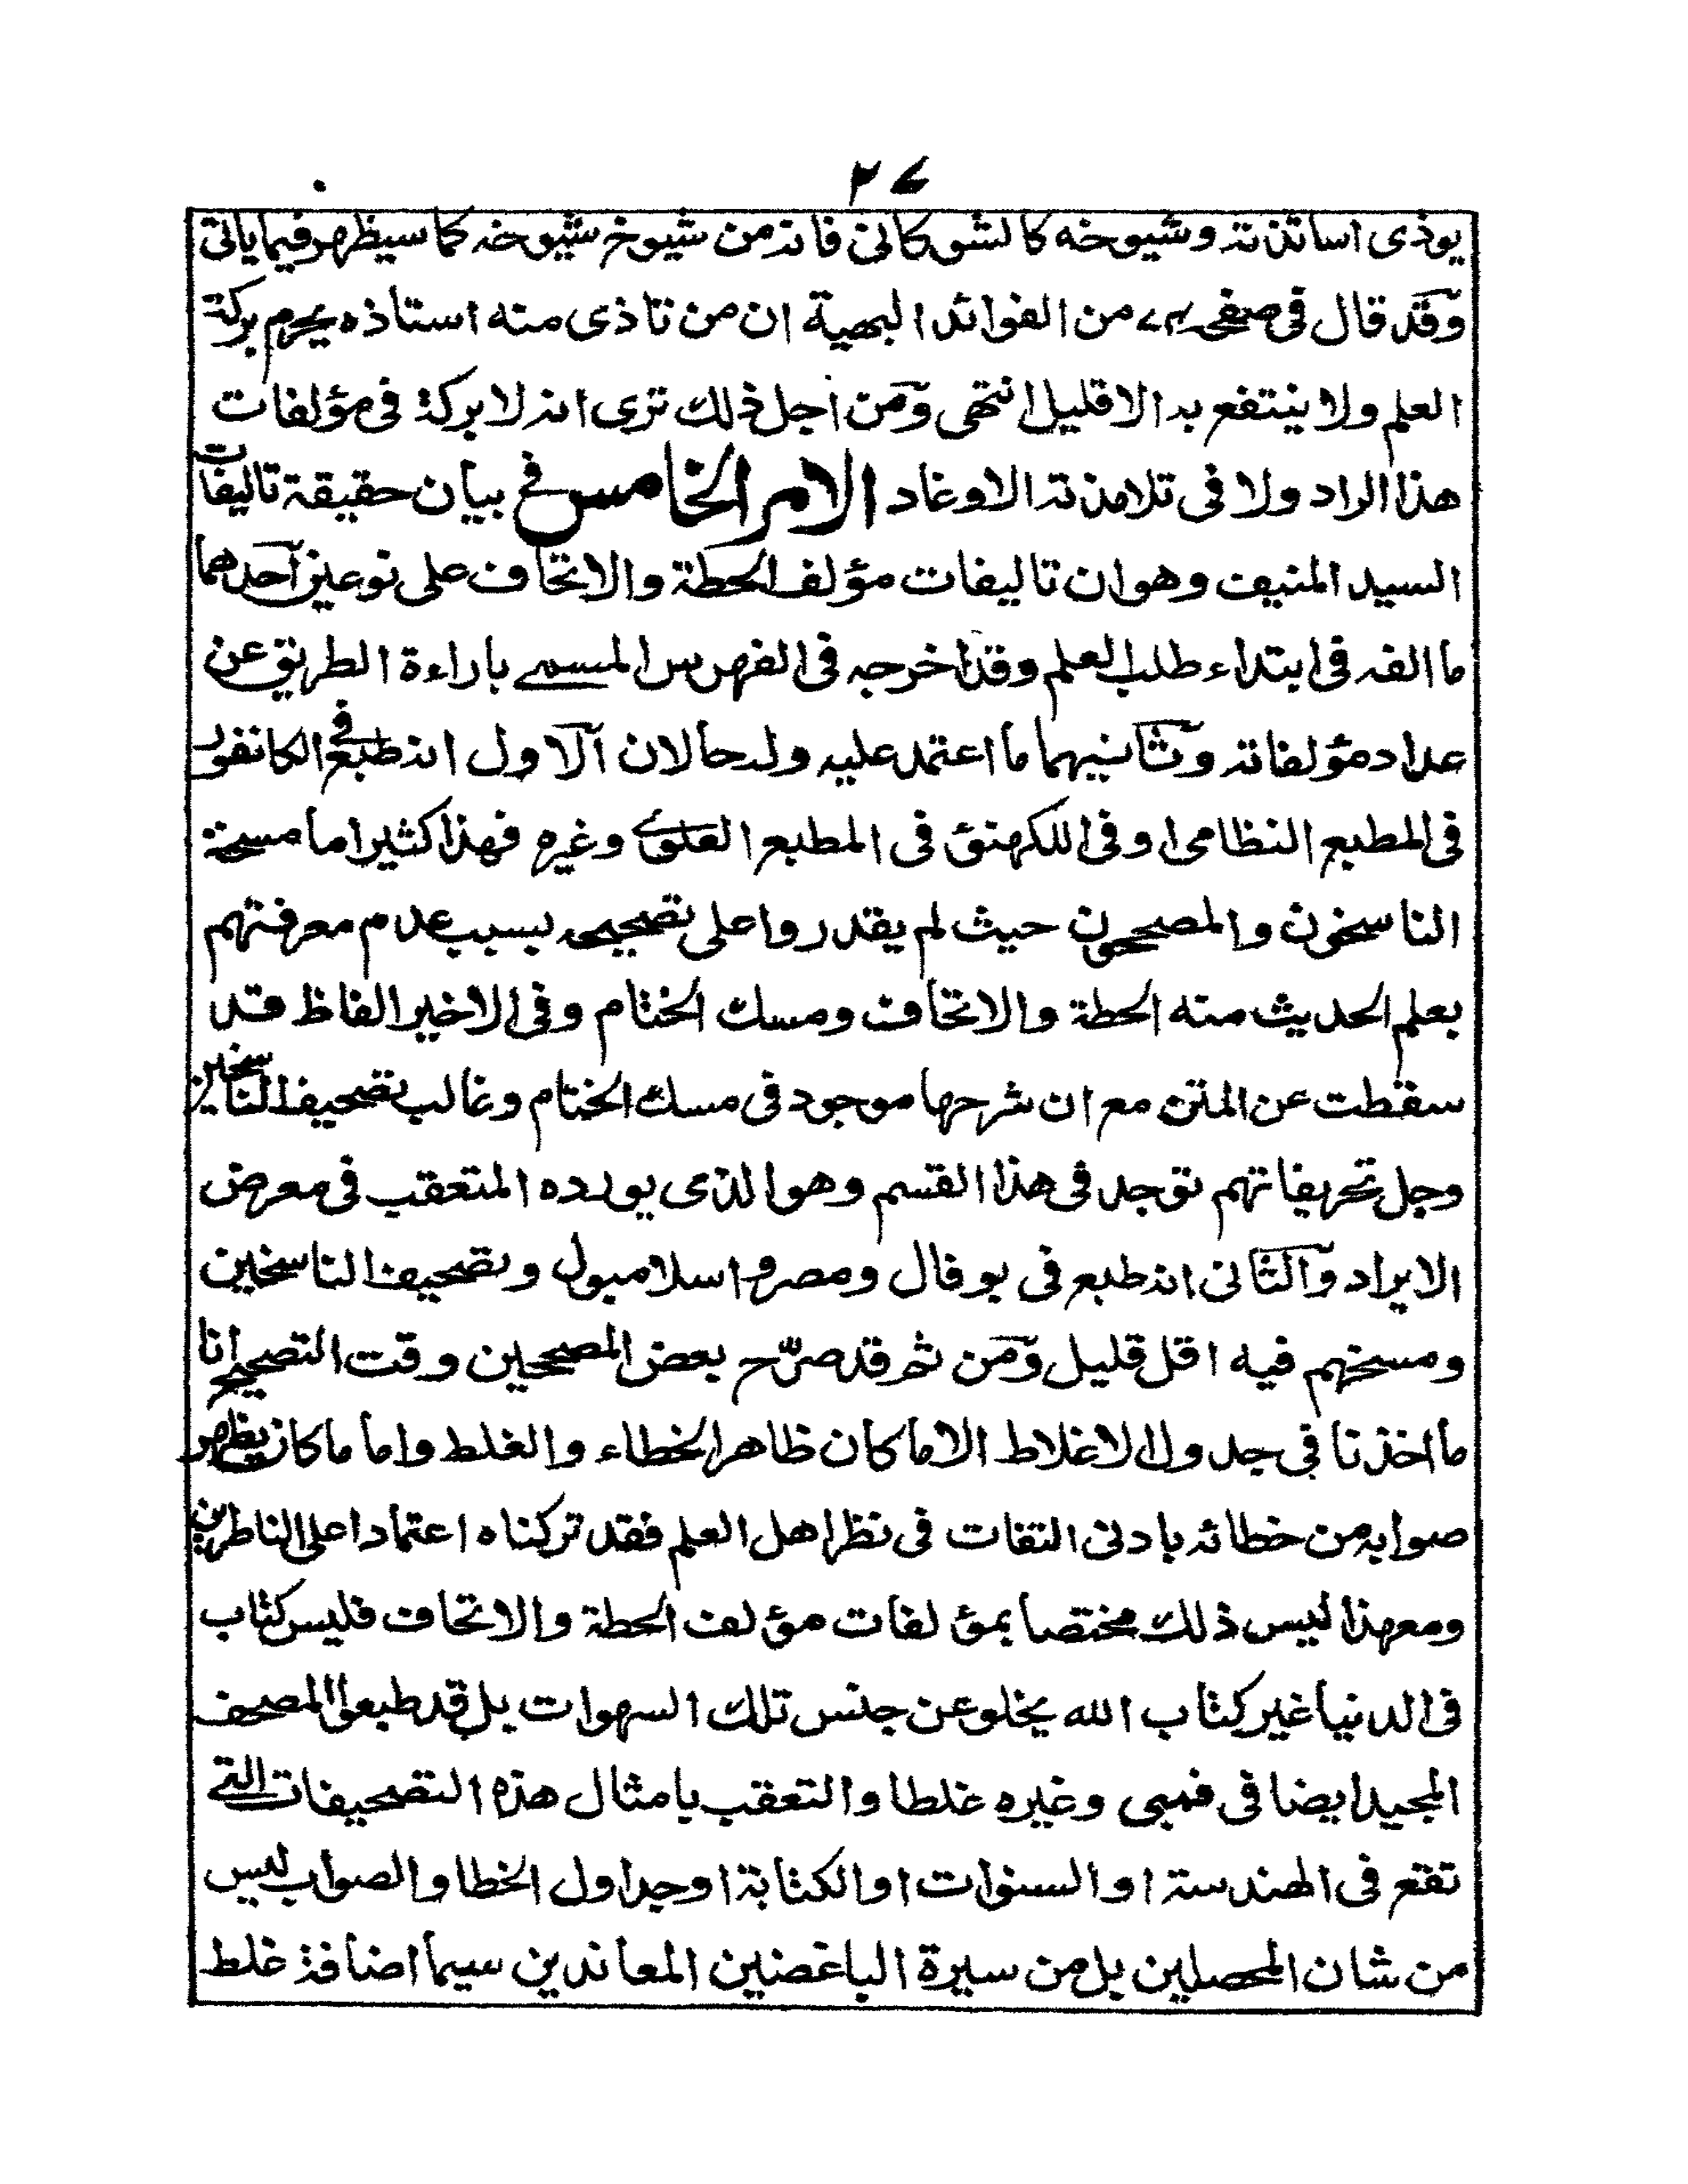 ٢٧
يوذى اساتذته وشيوخه كالشوكانى فانه من شيوخ شيوخه كما سيظهر فيما ياتى
وقد قال فى صفحه من الفوائد البهية ان من تاذى منه استاذه يحرم بركة
العلم ولا ينتفع به الا قليل انتهى ومن اجل ذلك ترى انه لا بركة فى مؤلفات
هذا الراد ولا فى تلامذته الاوغاد الامر الخامس فى بيان حقيقة تاليفات
السيد المنيف وهو ان تاليفات مؤلف الحطة والاتحاف على نوعين احدهما
ما الفه فى ابتداء طلب العلم وقد اخرجه فى الفهرس المسمى باراءة الطريق عن
عداد مؤلفاته وثانيهما ما اعتمد عليه وله حالان الاول انه طبع فى الكانفور
فى المطبع النظامى او فى اللكهنؤ فى المطبع العلوى وغيره فهذا كثيرا ما مسخه
الناسخون والمصححون حيث لم يقدروا على تصحيحه بسبب عدم معرفتهم
بعلم الحديث منه الحطة والاتحاف ومسك الختام وفى الاخير الفاظ قد
سقطت عن المتن مع ان شرحها موجود فى مسك الختام وغالب تصحيف الناسخين
وجل تحريفاتهم توجد فى هذا القسم وهو الذى يورده المتعقب فى معرض
الايراد والثانى انه طبع فى بوفال ومصر واسلامبول وتصحيف الناسخين
ومسخهم فيه اقل قليل ومن ثم قد صرّح بعض المصححين وقت التصحيح انا
ما اخذنا فى جدول الاغلاط الا ما كان ظاهر الخطاء والغلط واما ما كان يظهر
صوابه من خطائه بادنى التفات فى نظر اهل العلم فقد تركناه اعتمادا على الناظرين
ومعهذا ليس ذلك مختصا بمؤلفات مؤلف الحطة والاتحاف فليس كتاب
فى الدنيا غير كتاب الله يخلو عن جنس تلك السهوات بل قد طبعوا المصحف
المجيد ايضا فى فمبى وغيره غلطا والتعقب بامثال هذه التصحيفات التى
تقع فى الهندسة او السنوات او الكتابة او جداول الخطا والصواب ليس
من شان المحصلين بل من سيرة الباغضين المعاندين سيما اضافة غلط